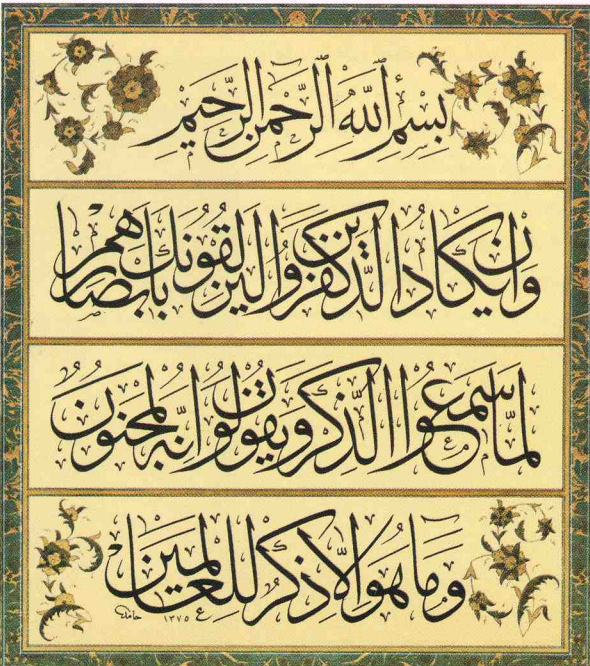 بِسْمِ ٱللّٰهِ ٱلرَّحْمٰنِ ٱلرَّحِيمِ
وَإِنْ يَكَادُ الَّذِينَ كَفَرُوا لَيُزْلِقُونَكَ بِأَبْصَارِهِمْ
لَمَّا سَمِعُوا الذِّكْرَ وَيَقُولُونَ إِنَّهُ لَمَجْنُونٌ
وَمَا هُوَ إِلَّا ذِكْرٌ لِلْعَالَمِينَ
حامد ١٣٧٥